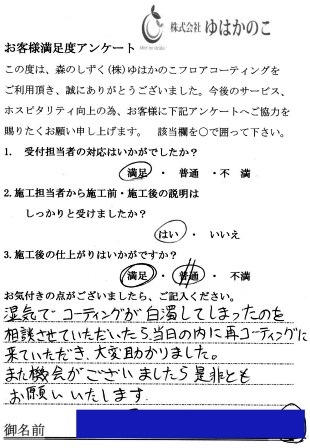 株式会社 ゆはかのこ
お客様満足度アンケート
この度は、森のしずく(株)ゆはかのこフロアコーティングを
ご利用頂き、誠にありがとうございました。今後のサービス、
ホスピタリティ向上の為、お客様に下記アンケートへご協力を
賜りたくお願い申し上げます。 該当欄を○で囲って下さい。
1. 受付担当者の対応はいかがでしたか?
満足 ・ 普通 ・ 不 満
2.施工担当者から施工前・施工後の説明は
しっかりと受けましたか?
はい ・ いいえ
3.施工後の仕上がりはいかがですか?
満足 ・ 普通 ・ 不満
お気付きの点がございましたら、ご記入ください。
湿気で コーティングが 白濁してしまったのを
相談させていただいたら、当日の内に再コーティングに
来ていただき、大変助かりました。
また機会がございましたら是非とも
お願いいたします.
御名前